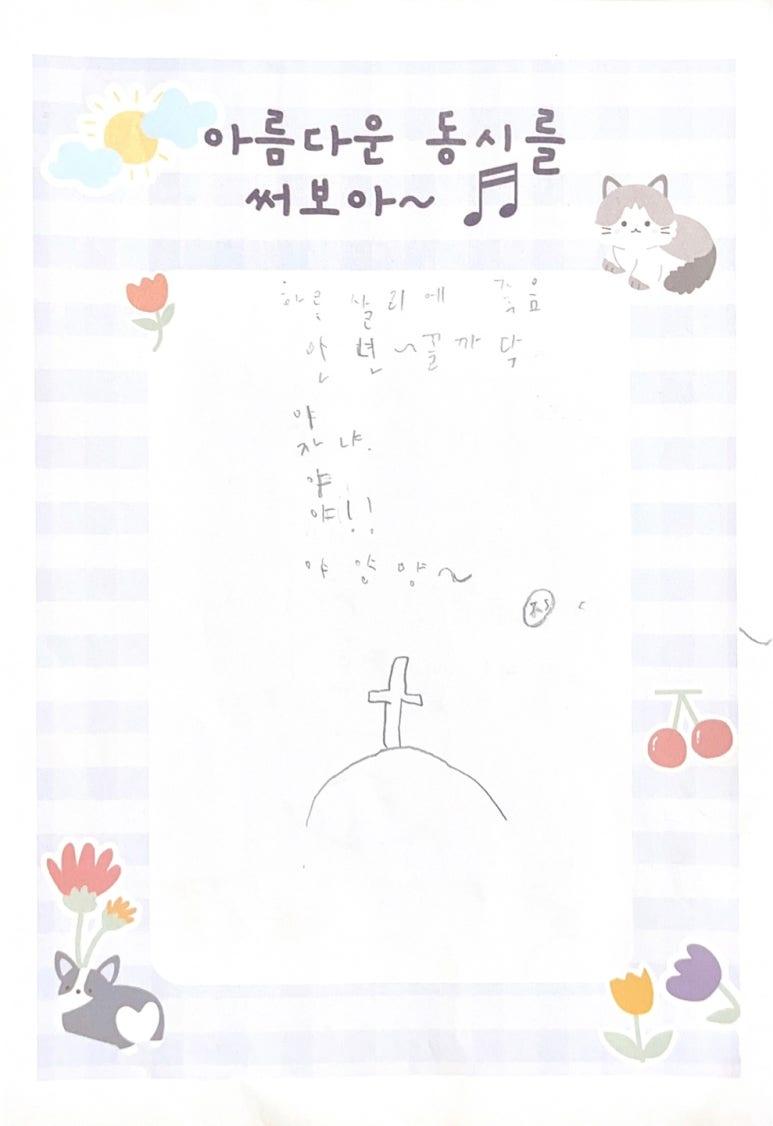 아름다운 동시를
써보아~
하루 살리에 죽음
안 년~꼴까 닥
야
자냐.
야
야!!
야 양 망~